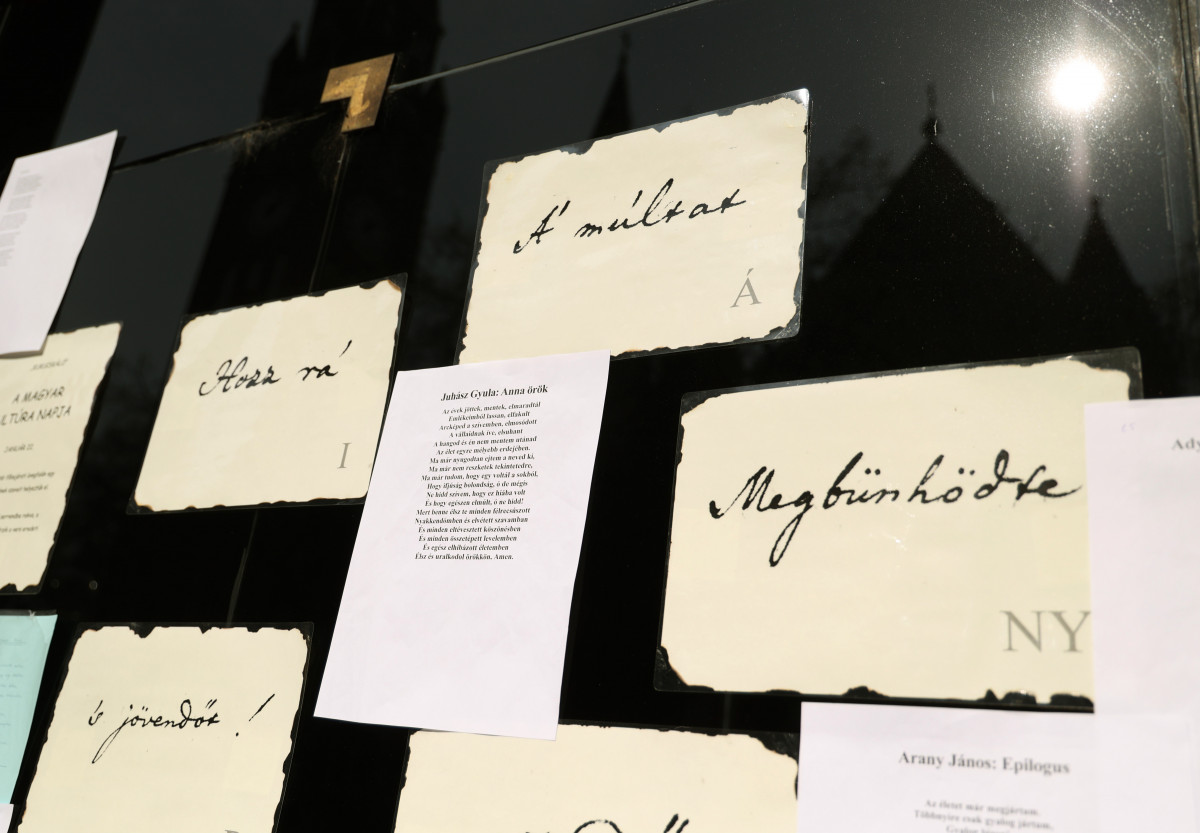 A' múltat
Á
Hozz rá
I
A MAGYAR
KULTÚRA NAPJA
JANUÁR 22
Juhász Gyula: Anna örök
Az évek jöttek, mentek, elmaradtál
Emlékeimből lassan, elfakult
Arcképed a szívemben, elmosódott
A vállaidnak íve, elsuhant
A hangod és én nem mentem utánad
Az élet egyre mélyebb erdejében.
Ma már nyugodtan ejtem a neved ki,
Ma már nem reszketek tekintetedre,
Ma már tudom, hogy egy voltál a sokból,
Hogy ifjúság bolondság, ó de mégis
Ne hidd szívem, hogy ez hiába volt
És hogy egészen elmúlt, ó ne hidd!
Mert benne élsz te minden félrecsúszott
Nyakkendőmben és elvétett szavamban
És minden eltévesztett köszönésben
És minden összetépett levelemben
És egész elhibázott életemben
Élsz és uralkodol örökkön, Amen.
Megbünhödte
NY
Ady
ís jövendőt !
Arany János: Epilogus
Az életet már megjártam.
Többnyire csak gyalog jártam,
Gyalog